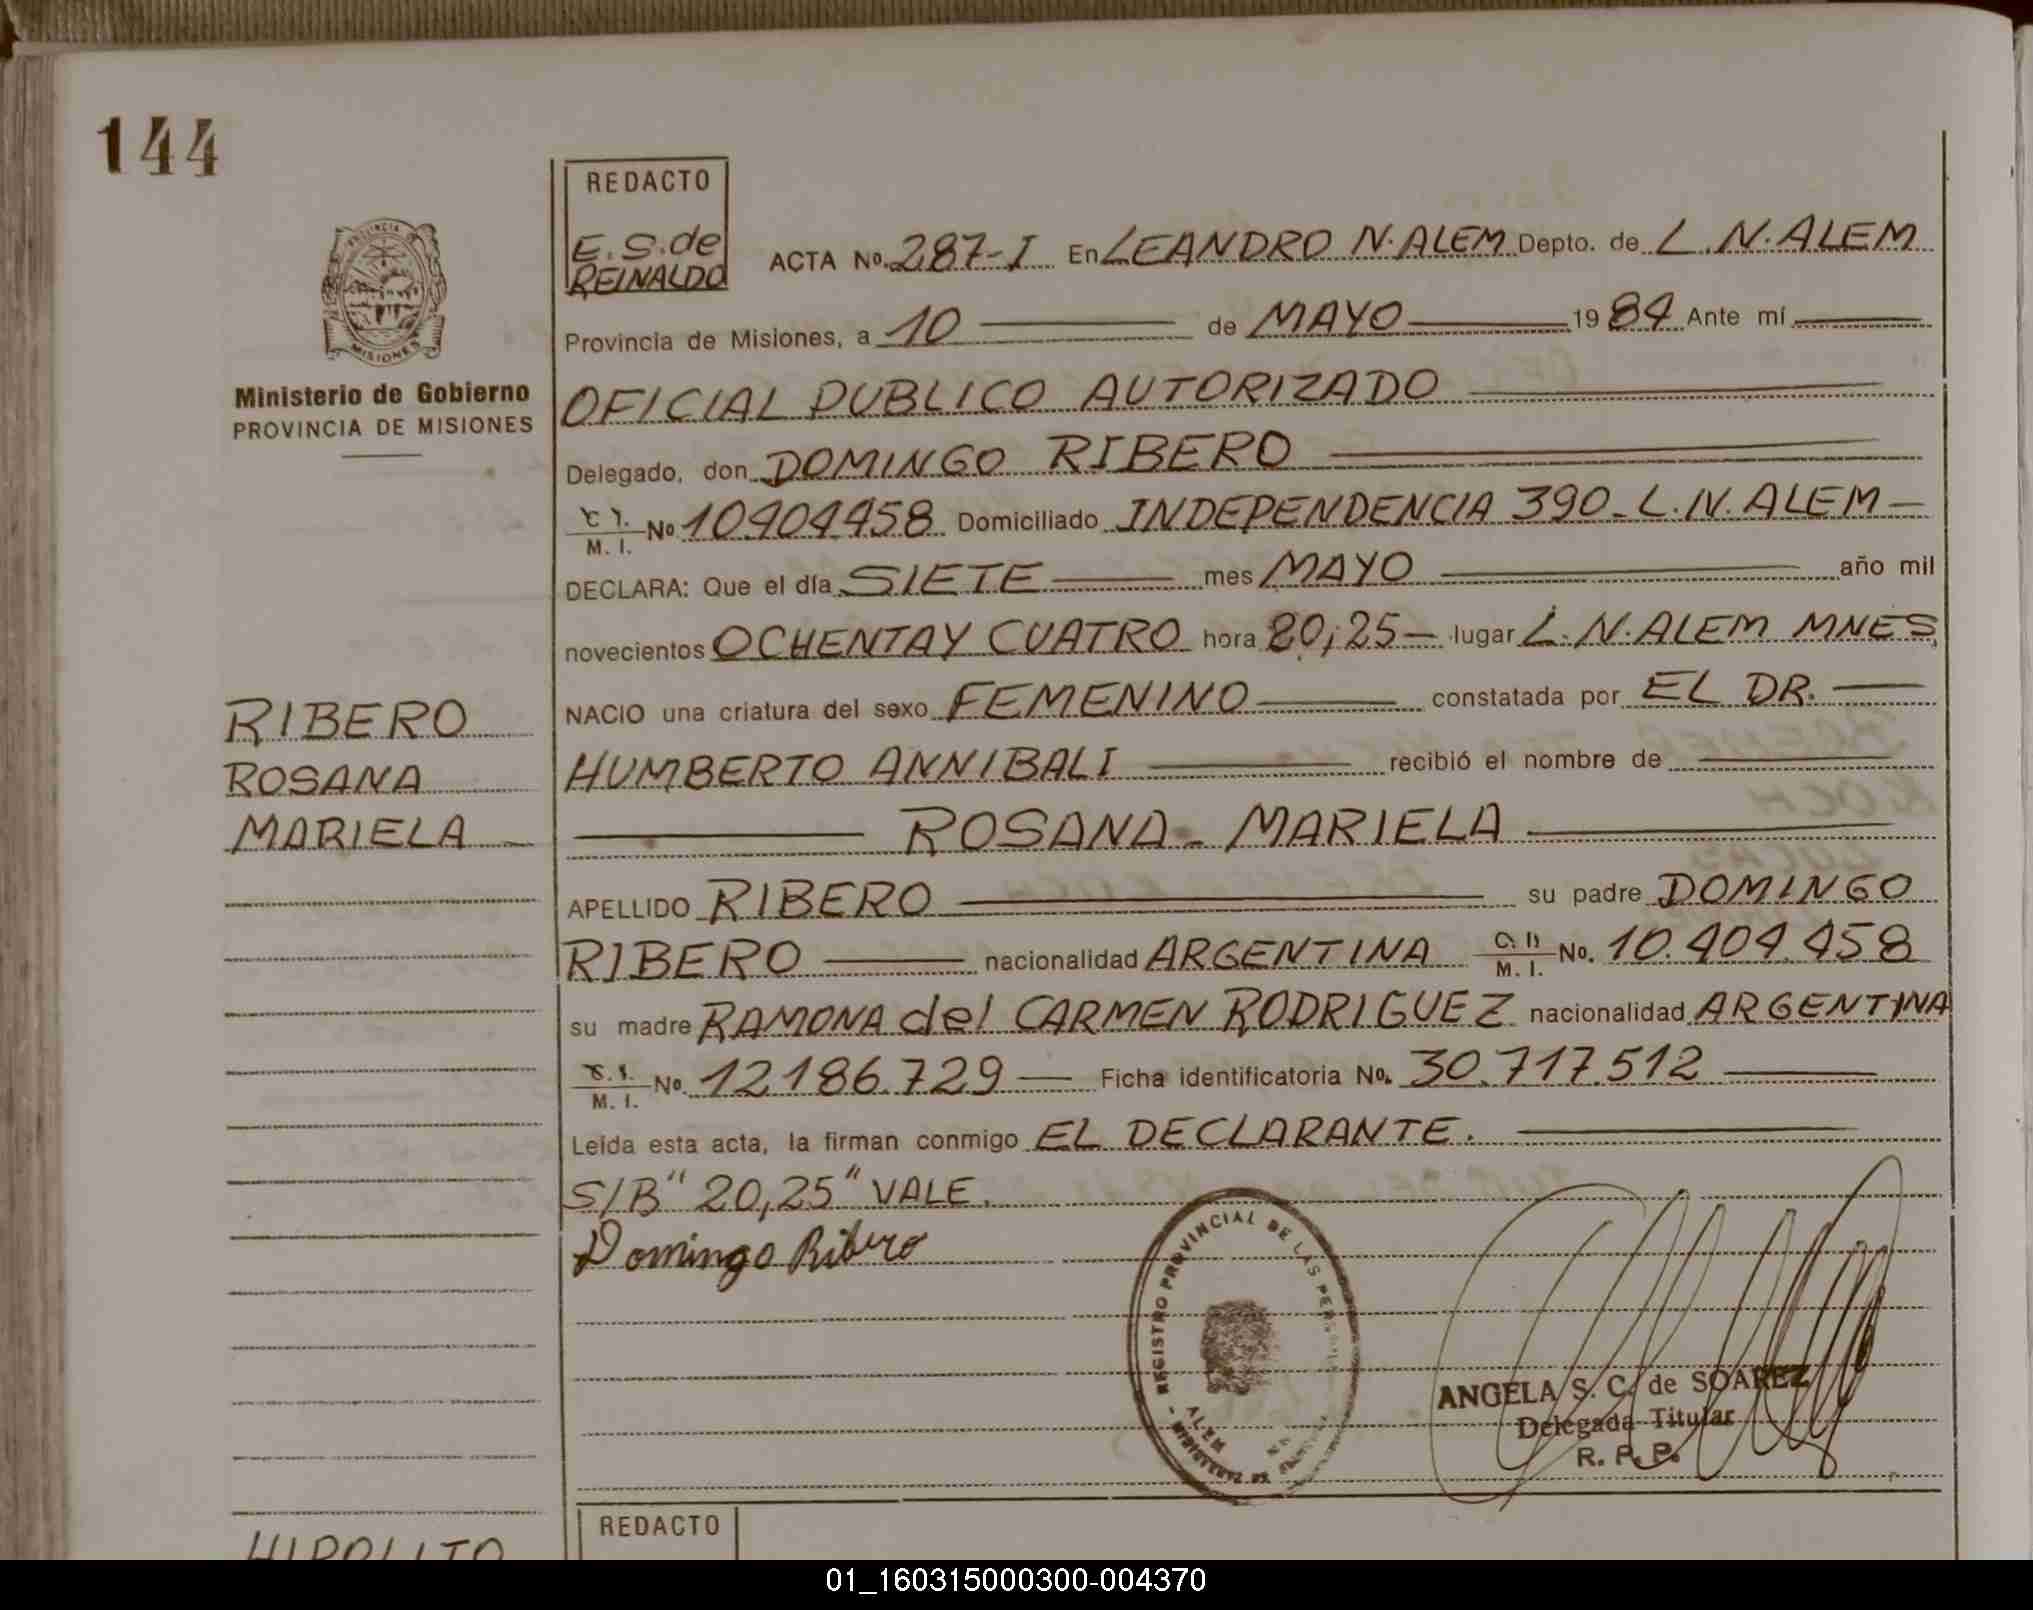 144
REDACTO
E. S. de
REINALDO
PROVINCIA DE
MISIONES
Ministerio de Gobierno
PROVINCIA DE MISIONES
ACTA No. 287-I En LEANDRO N. ALEM Depto. de L. N. ALEM
Provincia de Misiones, a 10 de MAYO 1984 Ante mí
OFICIAL PUBLICO AUTORIZADO
Delegado, don DOMINGO RIBERO
C. I. M. I. No 10.404.458 Domiciliado INDEPENDENCIA 390 - L. N. ALEM -
DECLARA: Que el día SIETE mes MAYO año mil
novecientos OCHENTA Y CUATRO hora 20,25 - lugar L. N. ALEM MNES,
NACIO una criatura del sexo FEMENINO constatada por EL DR.
HUMBERTO ANNIBALI recibió el nombre de
ROSANA - MARIELA
RIBERO
ROSANA
MARIELA
APELLIDO RIBERO su padre DOMINGO
RIBERO nacionalidad ARGENTINA C. I. M. I. No. 10.404.458
su madre RAMONA del CARMEN RODRIGUEZ nacionalidad ARGENTINA
C. I. M. I. No. 12186.729 Ficha identificatoria No. 30.717.512
Leída esta acta, la firman conmigo EL DECLARANTE.
S/B " 20,25 " VALE.
Domingo Ribero
REGISTRO PROVINCIAL DE LAS
ALEM
ANGELA S. C. de SOAREZ
Delegada Titular
R. P. P.
REDACTO
HIPOLITO
01_160315000300-004370